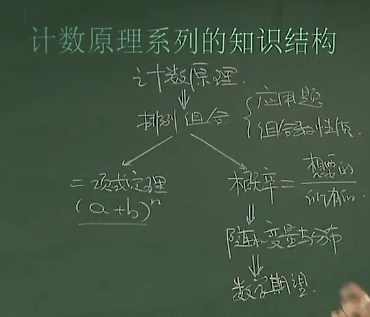 计数原理系列的知识结构
计数原理.
排列组合
应用题
组合数性质.
二项式定理
(a+b)ⁿ
概率=想要的/所有的
随机变量与分布
数学期望.